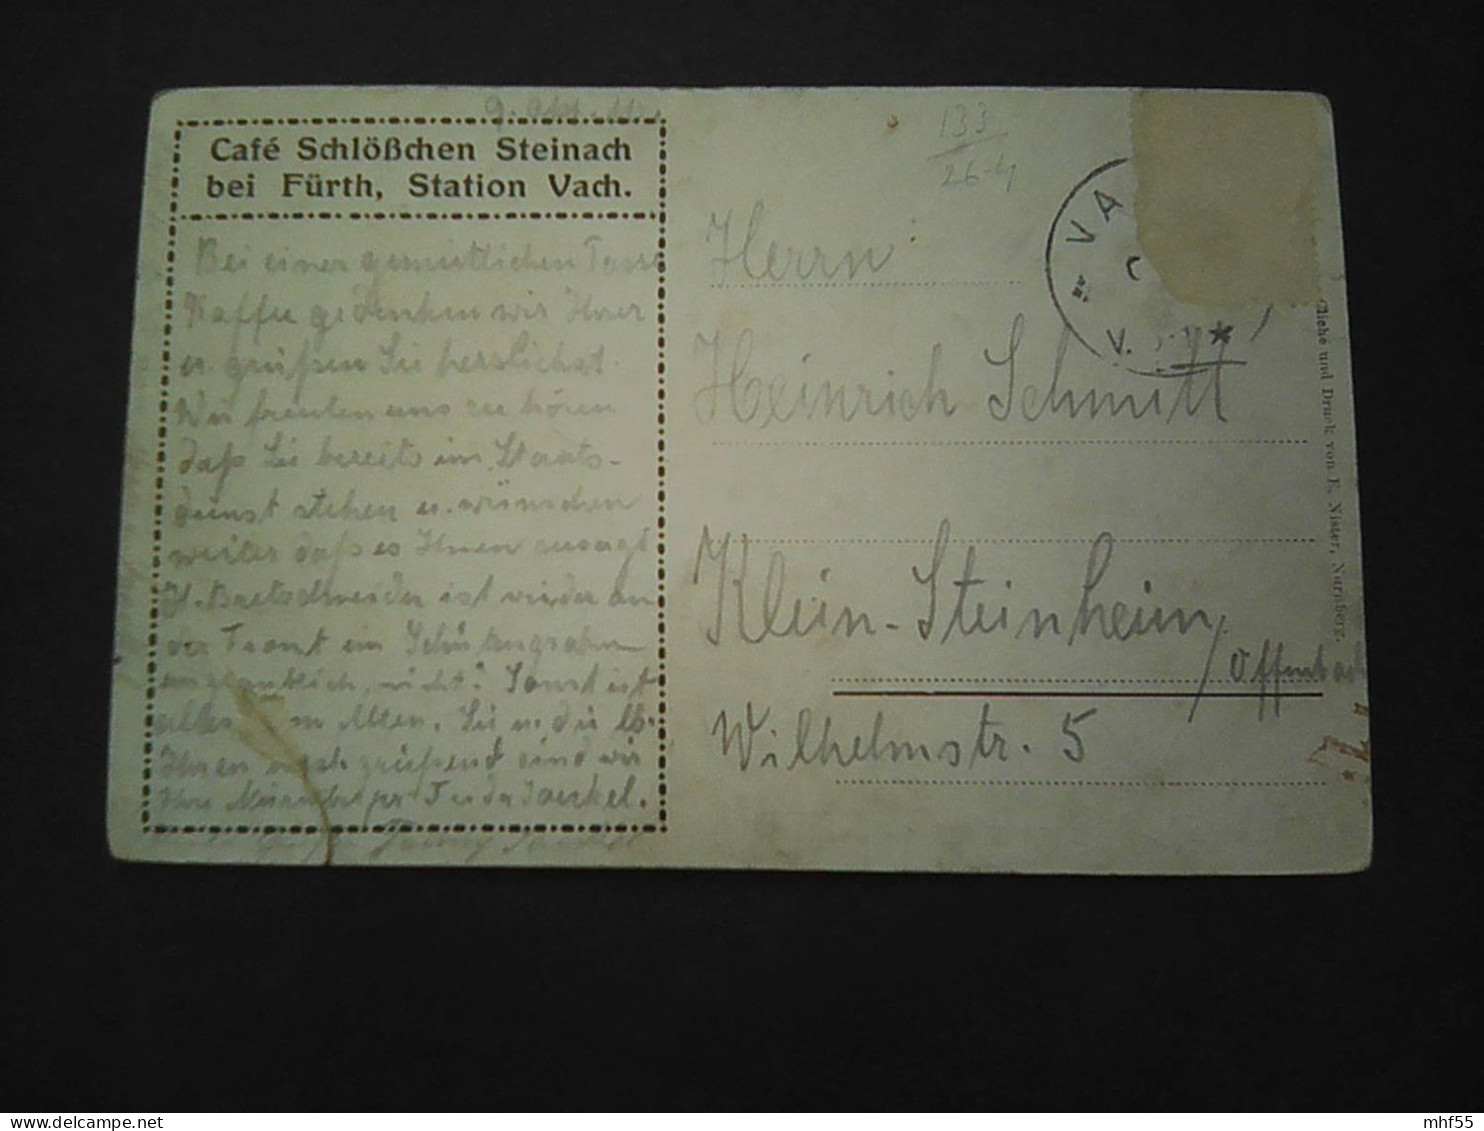 9. Okt.
Café Schlößchen Steinach
bei Fürth, Station Vach.
Bei einer gemütlichen Tasse
Kaffee gedenken wir Ihrer
u. grüßen Sie herzlichst.
Wir freuten uns zu hören
daß Sie bereits im Staats-
dienst stehen u. wünschen
weiter daß es Ihnen zusagt
H. Bretschneider ist wieder an
der Front im Schützengraben
unglaublich, nicht? Sonst ist
alles im Alten. Sie u. die lb.
Ihren noch grüßend sind wir
Ihre
Jaeckel.
133
26-4
VA
V.
Herrn
Heinrich Schmitt
Klein-Steinheim
/Offenbach
Wilhelmstr. 5
Cliché und Druck von E. Nister, Nürnberg.
mhf55